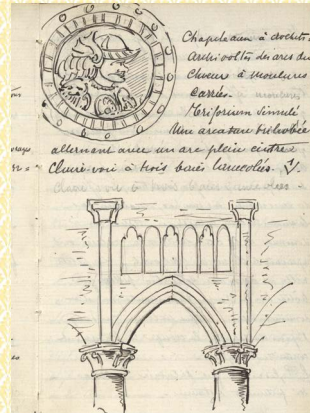 Chapiteaux à crochets.
Archivoltes des arcs du
Chœur à moulures
Carrées.
Triforium simulé
Une arcature trilobée
alternant avec un arc plein cintre
Claire voie à trois baies lancéolées.